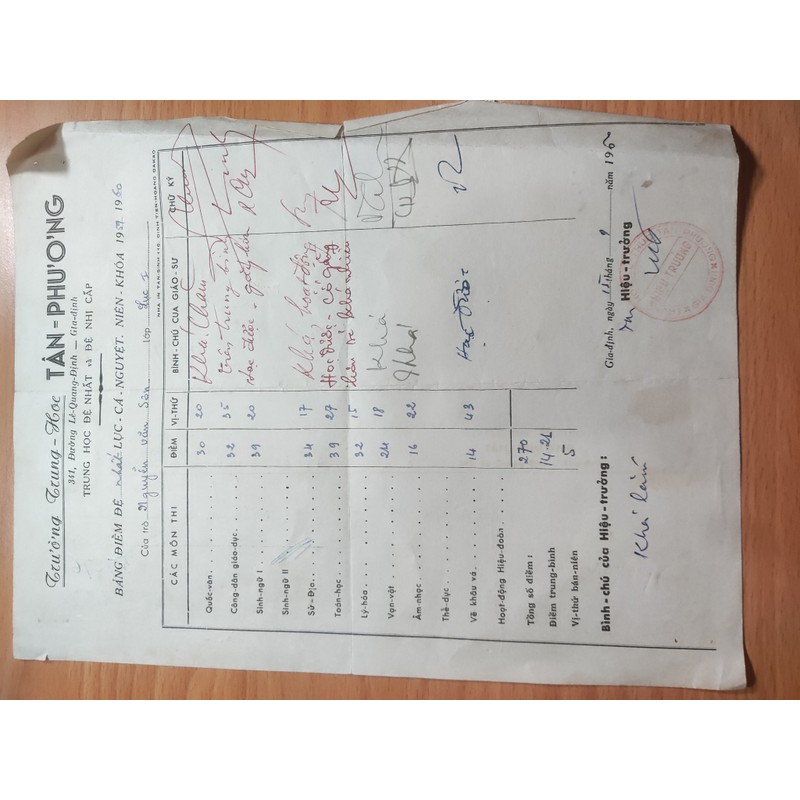 Trường Trung-Học TÂN-PHƯƠNG
341, Đường Lê-Quang-Định — Gia-định
TRUNG HỌC ĐỆ NHẤT và ĐỆ NHỊ CẤP
BẢNG ĐIỂM ĐỆ nhất LỤC-CÁ-NGUYỆT. NIÊN-KHÓA 1959 1960
Của trò Nguyễn văn Sàn lớp lục 1
NHÀ IN TÂN-SINH 412, ĐINH TIÊN-HOÀNG ĐAKAO
CÁC MÔN THI ĐIỂM VỊ-THỨ BÌNH-CHÚ CỦA GIÁO-SƯ CHỮ KÝ
Quốc-văn 30 20 Khá! Chăm
Công-dân giáo-dục 32 35 trên trung bình
Sinh-ngữ I 39 20
Sinh-ngữ II
Sử-Địa 34 17 Khá, hoạt động
Toán-học 39 27 Học được - Cố gắng
Lý-hóa 32 15
Vạn-vật 24 18 Khá
Âm-nhạc 16 22 Khá
Thể-dục
Vẽ khâu vá 14 43 Học được
Hoạt-động Hiệu-đoàn
Tổng số điểm : 270
Điểm trung-bình 14.21
Vị-thứ bán-niên 5
Bình-chú của Hiệu-trưởng :
Khá lắm
Gia-định, ngày tháng năm 196
Hiệu-trưởng
HIỆU TRƯỞNG